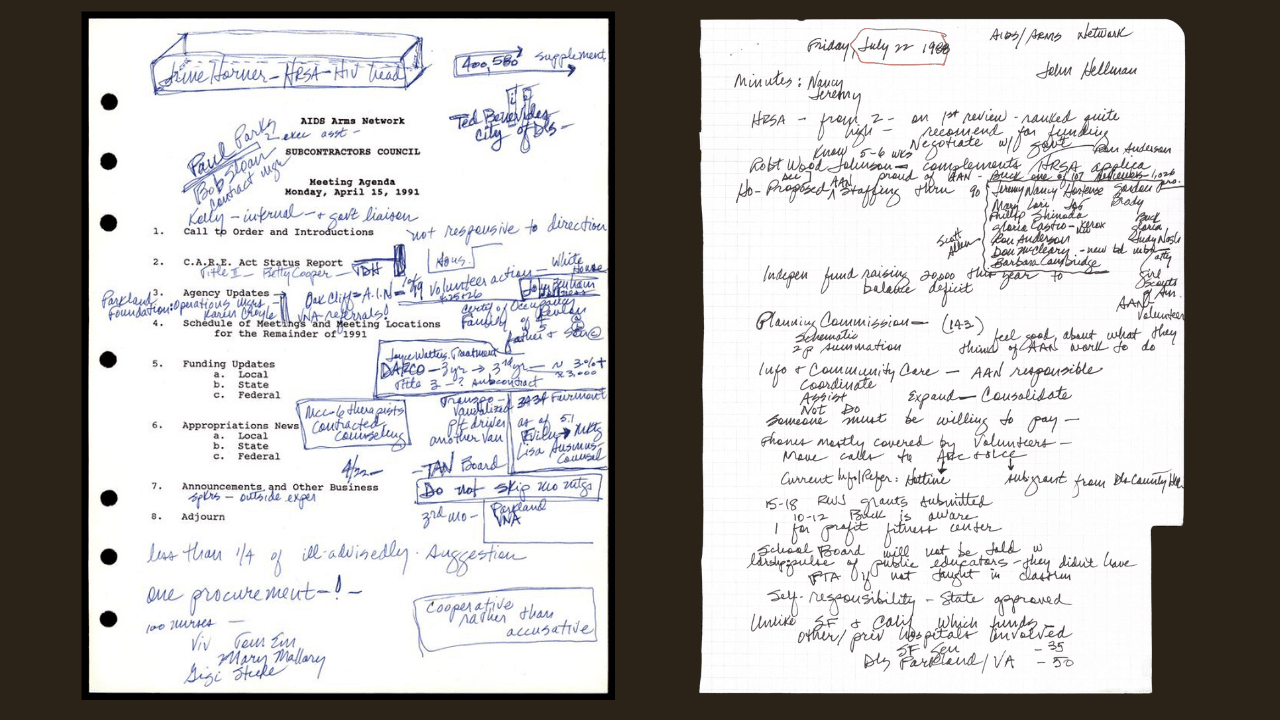 June Horner - HRSA - HIV head
400,580 supplement
Ted Benavides
City of Dls -
AIDS Arms Network
Paul Parks
exec asst -
SUBCONTRACTORS COUNCIL
Bob Sloan
contract mgr
Meeting Agenda
Monday, April 15, 1991
Kelly - internal + govt liaison
1. Call to Order and Introductions
not responsive to direction
2. C.A.R.E. Act Status Report
Title II - Betty Cooper - TDH
Hous.
3. Agency Updates
Volunteer action - White House
Parkland
Foundation: Operations
Oak Cliff = A.I.N.
VNA referrals
Certif of Occupancy
4. Schedule of Meetings and Meeting Locations
for the Remainder of 1991
Father & Son
Joyce Watters. Treatment
DARCO - 3 yr → 3rd yr -
Title 3 - ? subcontract
5. Funding Updates
a. Local
b. State
c. Federal
MCC - 6 therapists
contracted
counseling
vandalized
p/t driver
another van
Fairmont
as of 5.1
Lisa
Counsel
6. Appropriations News
a. Local
b. State
c. Federal
4/22 -
TAN Board
7. Announcements and Other Business
spkrs - outside exper
Do not skip mo mtgs
8. Adjourn
3rd mo -
Parkland
VNA
less than 1/4 of ill-advisedly. suggestion
one procurement - ! -
100 nurses -
Cooperative
rather than
accusative
Viv Tom Em
Mary Mallory
Gigi
Friday July 22 1988
AIDS/ARMS Network
John Hellman
Minutes: Nancy
Jeremy
HRSA - from 2 - on 1st review - ranked quite
high - recomend for funding
Negotiate w/ govt
Know 5-6 wks
Ron Anderson
Robt Wood Johnson - complements HRSA applica
proud of AAN - Buck one of 107 reviewers
Ho - Proposed AAN Staffing thru 90
Jeremy Nancy Hortense Gordon
Mary Lori Brady
Phillip Shinoda
Gloria Castro - Xerox
Ron Anderson
Don McCleary - new bd mbr
Barbara Cambridge
Scott Allen
Buck
Gloria
Judy Nash
atty
Indepen fund raising 20,000 this year to
balance deficit
Girl
Scouts
of Am.
AAN
Volunteer
Planning Commission - (143)
Schematic
2 p summation
feel good about what they
think of AAN work to do
Info & Community Care - AAN responsible
Coordinate
Assist
Expand - Consolidate
Not Do
Someone must be willing to pay -
Phones mostly covered by Volunteers -
Move calls to
Current
Hotline
subgrant from Dls County
15-18 RWJ grants submitted
10-12 Buck is aware
1 for profit fitness center
School Board will not be told w
pulse of public educators - they didn't have
PTA not taught in classrm
Self-responsibility - State approved
Unlike SF & Calif which funds -
other/priv hospitals involved
SF Gen - 35
Dls Parkland/VA - 50